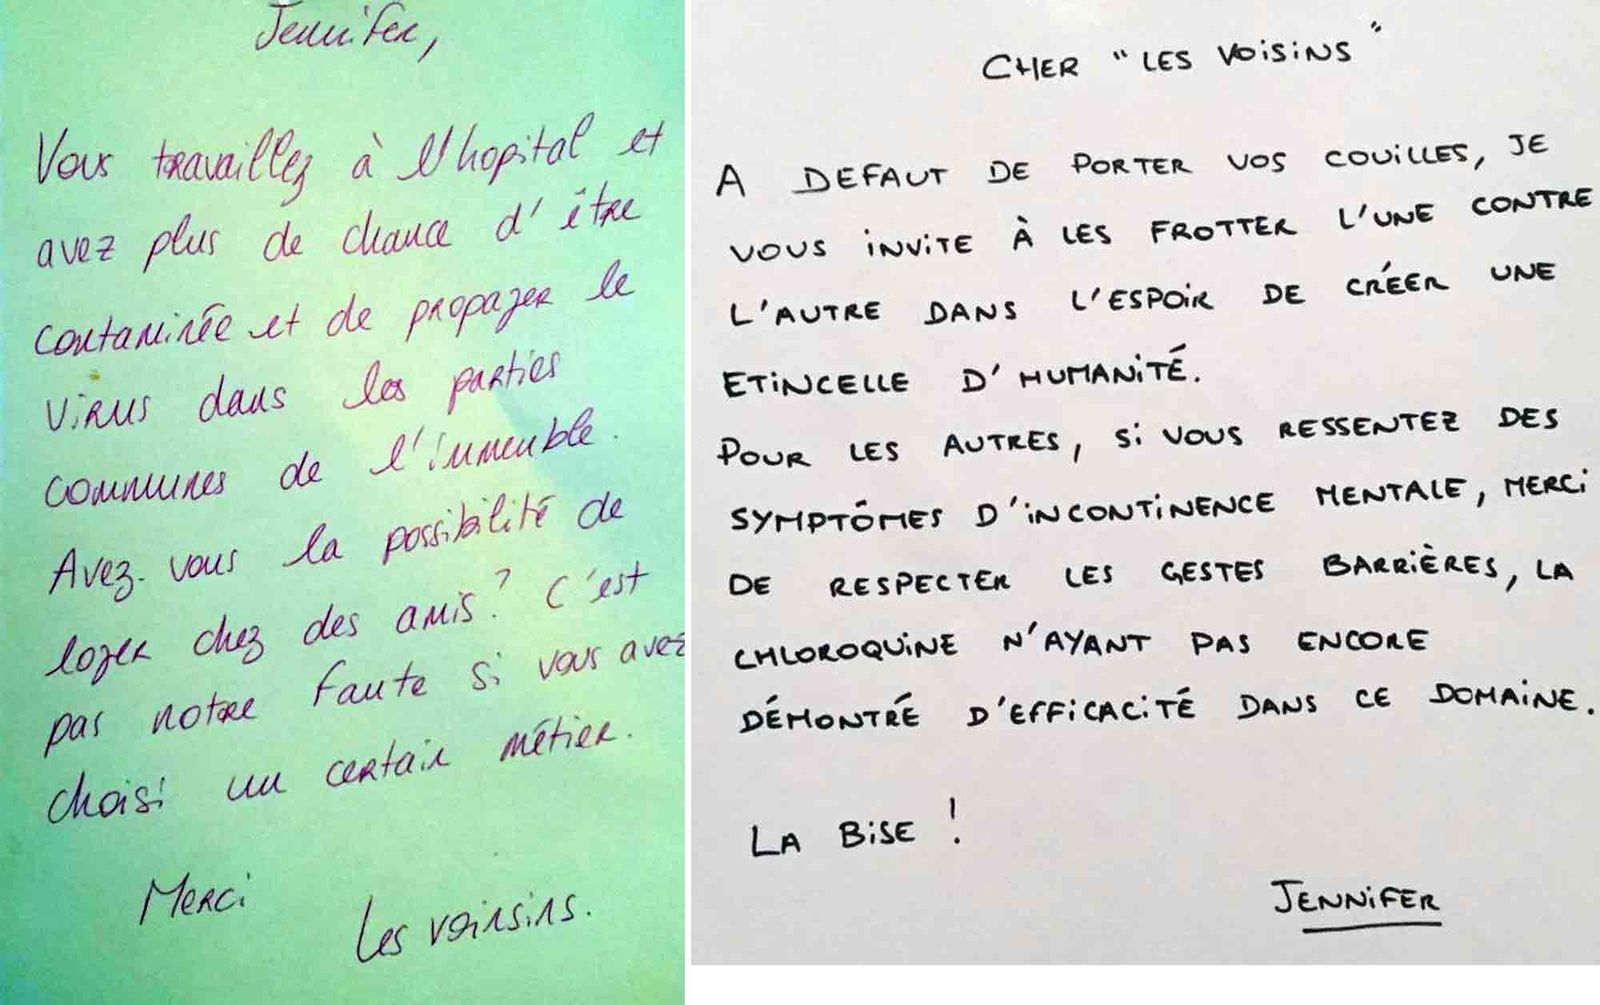 Jennifer,
Vous travaillez à l'hopital et
avez plus de chance d'être
contaminée et de propager le
virus dans les parties
communes de l'immeuble.
Avez-vous la possibilité de
loger chez des amis? C'est
pas notre faute si vous avez
choisi un certain métier.
Merci
Les voinsins.
CHER "LES VOISINS"
A DEFAUT DE PORTER VOS COUILLES, JE
VOUS INVITE À LES FROTTER L'UNE CONTRE
L'AUTRE DANS L'ESPOIR DE CRÉER UNE
ETINCELLE D'HUMANITÉ.
POUR LES AUTRES, SI VOUS RESSENTEZ DES
SYMPTÔMES D'INCONTINENCE MENTALE, MERCI
DE RESPECTER LES GESTES BARRIÈRES, LA
CHLOROQUINE N'AYANT PAS ENCORE
DÉMONTRÉ D'EFFICACITÉ DANS CE DOMAINE.
LA BISE !
JENNIFER